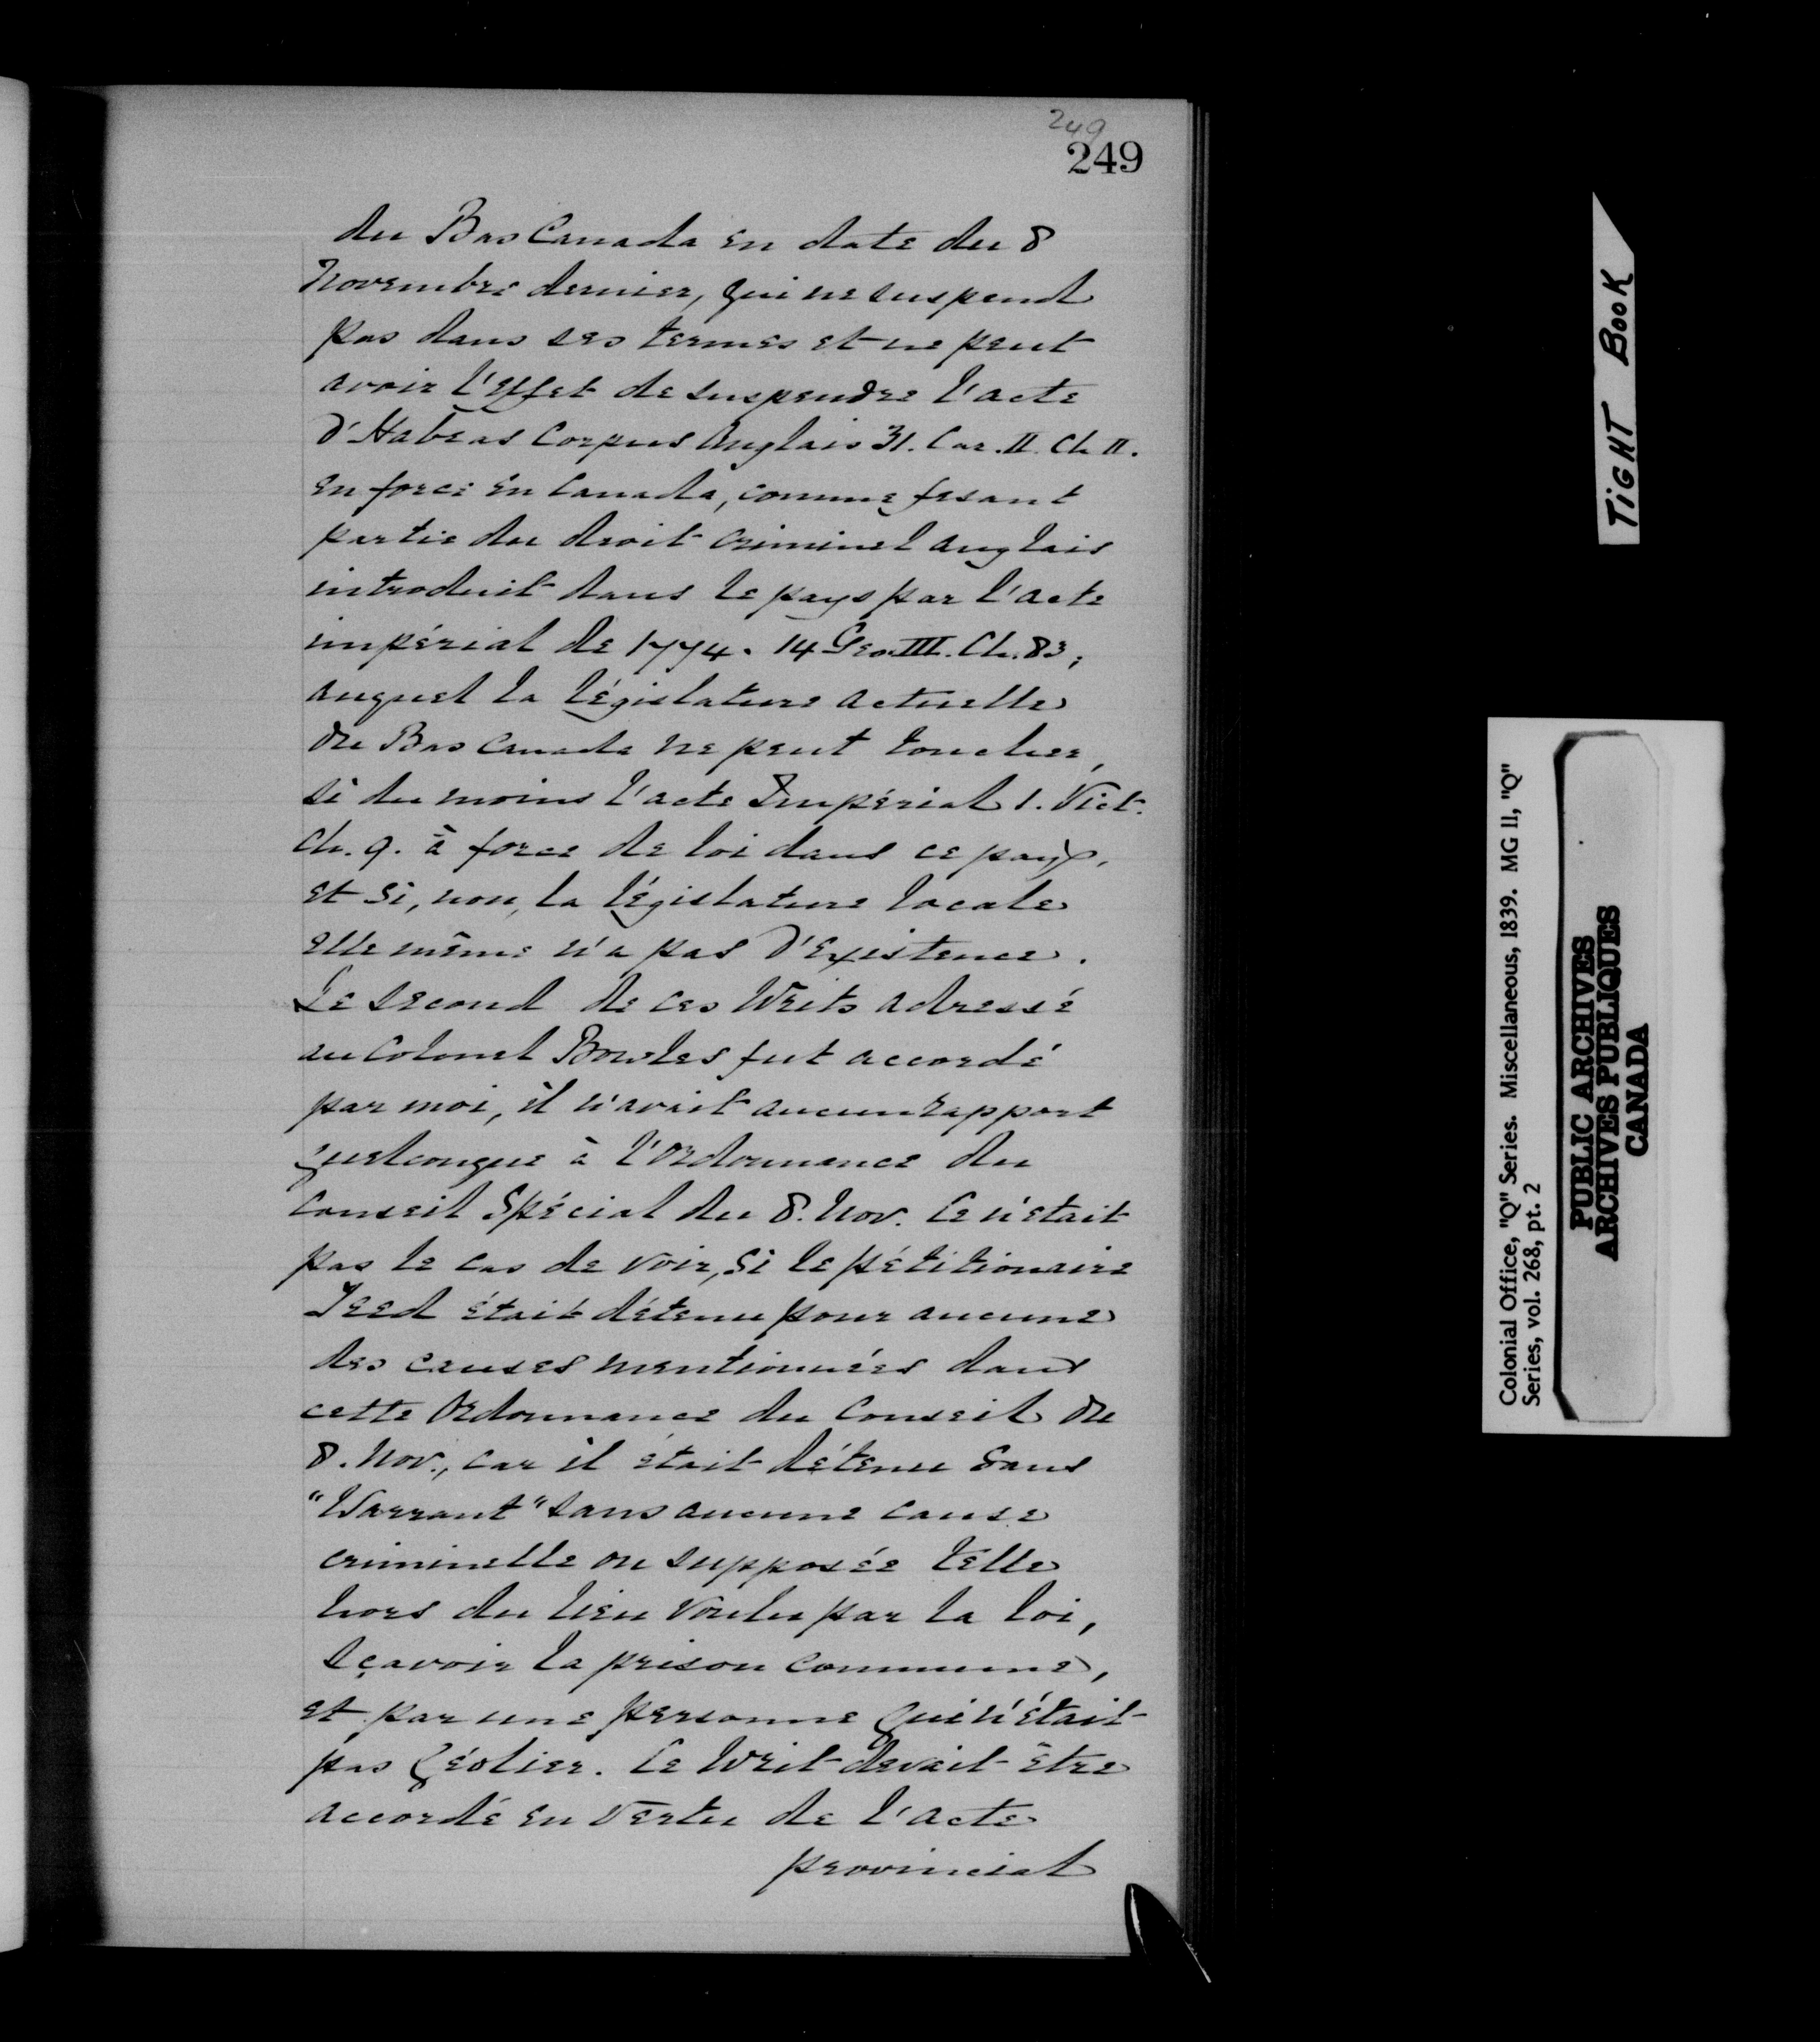 249
249
du Bas Canada en date du 8
Novembre dernier, qui ne suspend
pas dans ses termes et ne peut
avoir l'effet de suspendre l'acte
d'Habeas Corpus Anglais 31. Car. II. Ch II.
en force en Canada, comme fesant
partie du droit criminel anglais
introduit dans le pays par l'acte
impérial de 1774. 14 Geo. III. Ch. 83;
auquel la législature actuelle
du Bas Canada ne peut toucher,
si du moins l'acte Impérial 1. Vict.
Ch. 9. à force de loi dans ce pays,
et si, non, la législature locale
elle même n'a pas d'existence.
Le second de ces Writs adressé
au Colonel Bowles fut accordé
par moi, il n'avait aucun rapport
quelconque à l'Ordonnance du
Conseil Spécial du 8. Nov. Ce n'était
pas le cas de voir, si le pétitionaire
Teed était détenu pour aucune
des causes mentionnées dans
cette Ordonnance du Conseil du
8. Nov., car il était détenu sans
"Warrant" sans aucune cause
criminelle ou supposée telle
hors du lieu voulu par la loi,
sçavoir la prison commune,
et par une personne qui n'était
pas Géolier. Le Writ devait être
accordé en vertu de l'acte
provincial
TIGHT BOOK
Colonial Office, "Q" Series. Miscellaneous, 1839. MG 11, "Q"
Series, vol. 268, pt. 2
PUBLIC ARCHIVES
ARCHIVES PUBLIQUES
CANADA